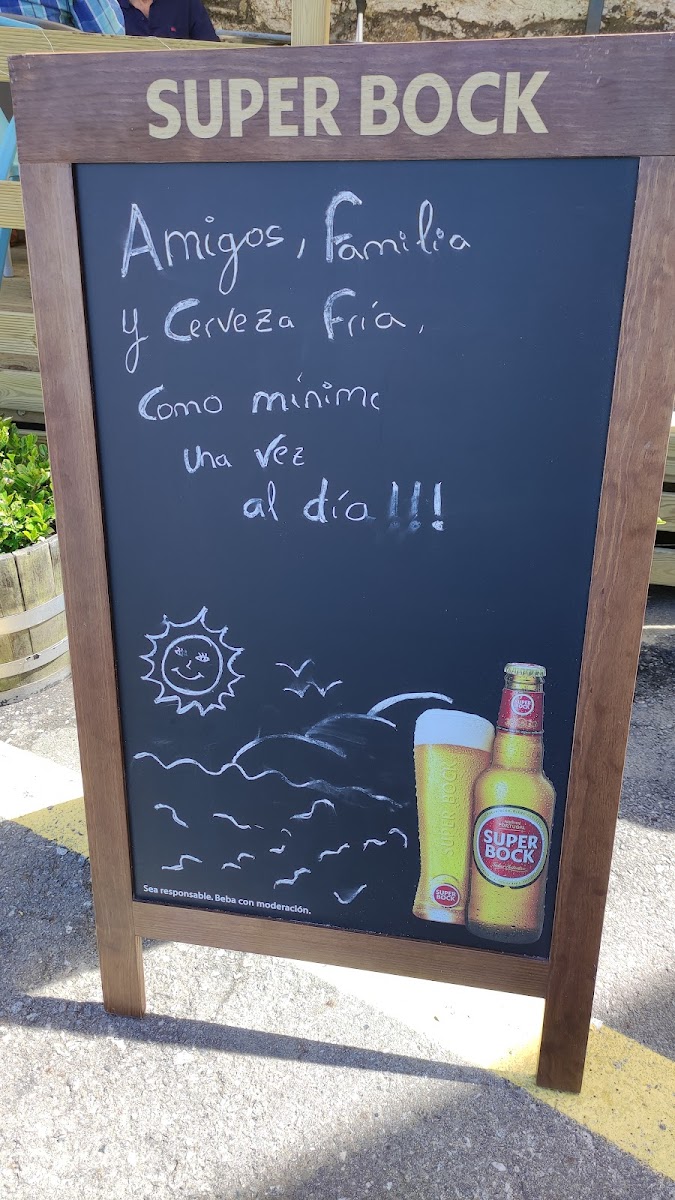 SUPER BOCK
Amigos, Familia
y Cerveza Fría,
Como mínimo
una vez
al día!!!
SUPER BOCK
SUPER BOCK
PORTUGAL
SUPER
BOCK
SUPER
BOCK
Sea responsable. Beba con moderación.